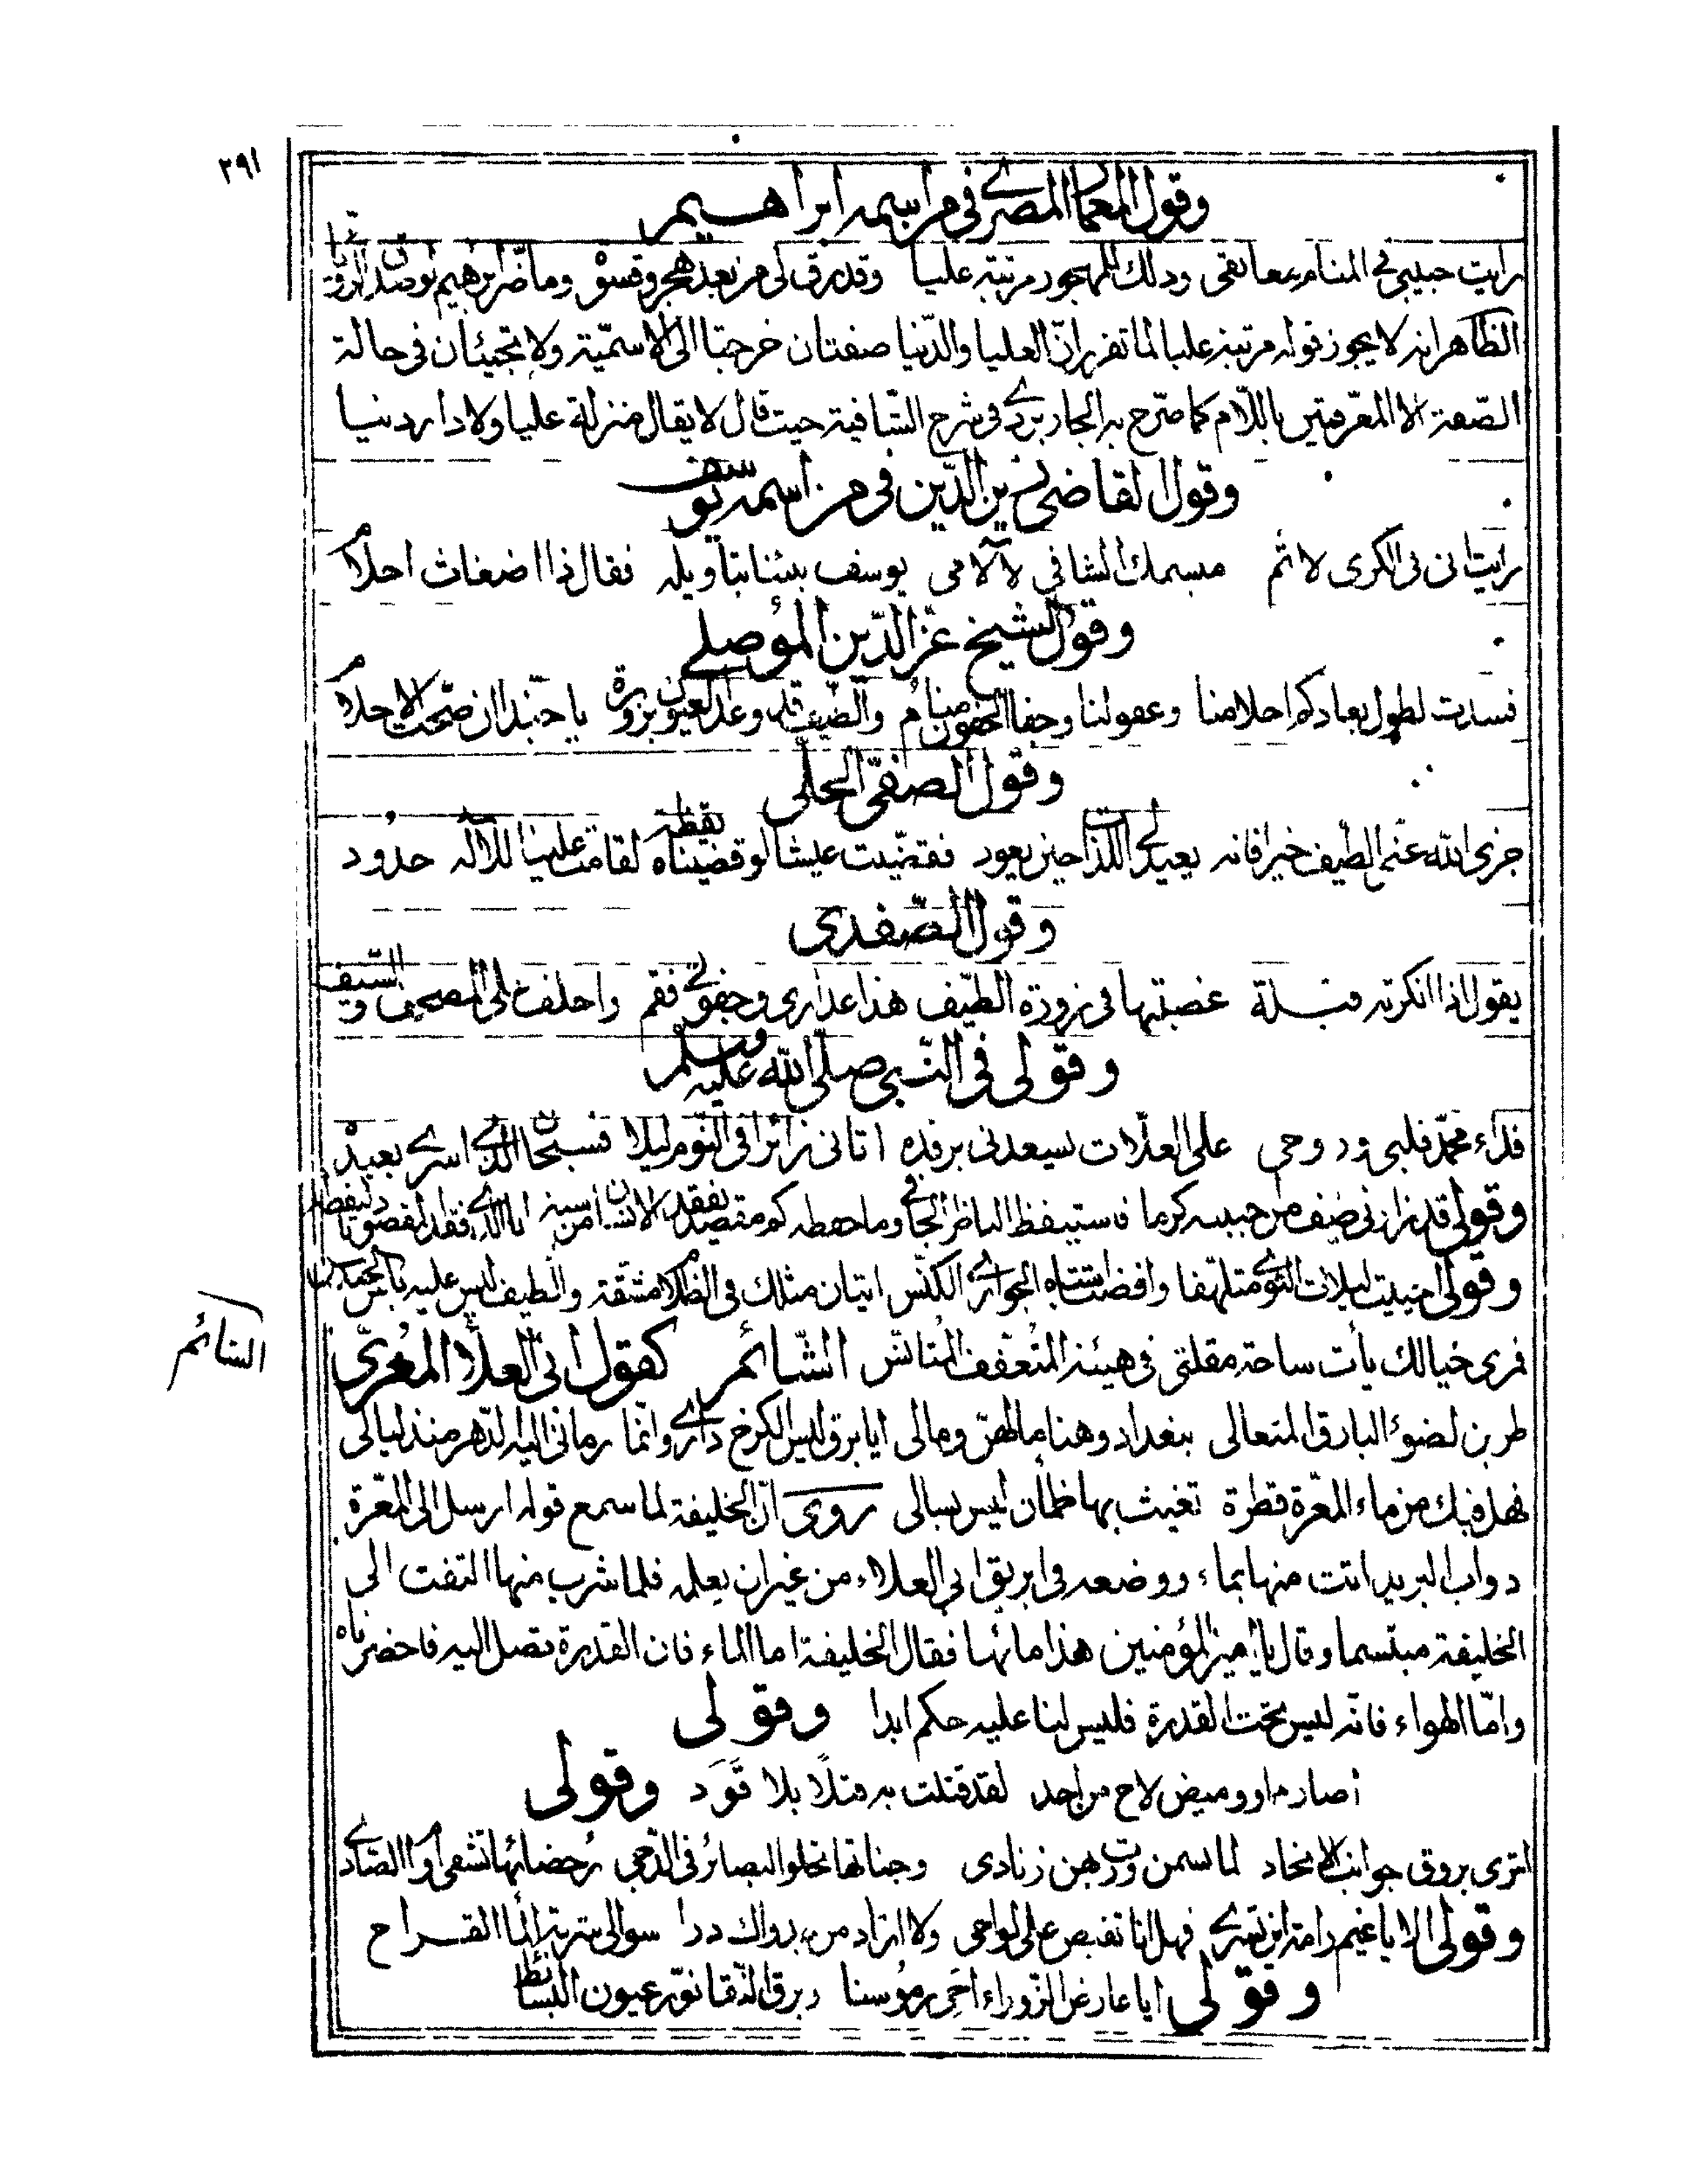 ٢٩١
وقول المعمار المصري في من اسمه ابراهيم
رايت حبيبي في المنام معانقي وذلك للمهجور مرتبة عليا وقد رق لي من بعد هجر وقسوة وما ضر ابرهيم لو صدق الرؤيا
الظاهر انه لا يجوز قوله مرتبة عليا لما تقرر ان العليا والدنيا صفتان خرجتا الى الاسمية ولا تجيئان في حالة
الصفة الا المعرفتين باللام كما صرح به الجاربردي في شرح الشافية حيث قال لا يقال منزلة عليا ولا دار دنيا
وقول القاضي زين الدين في من اسمه يوسف
رايتاني في الكرى لاثم مبسمك الشافي لآلامي يوسف نبئنا بتاويله فقال ذا اضغاث احلام
وقول الشيخ عز الدين الموصلي
فسدت لطول بعادكم احلامنا وعقولنا وجفا الجفون منام والضيف قد وعد العيون بزورة يا حبذا ان صحت الاحلام
وقول الصفي الحلي
جزى الله عني الطيف خيرا فانه يعيد لي اللذات حين يعود فقضيت عيشا لو قضيناه يقظة لقامت علينا للاله حدود
وقول الصفدي
يقول اذا انكرته قبلة غصبتها في زورة الطيف هذا عذاري وجفوني فقم واحلف على المصحف والسيف
وقولي في النبي صلى الله عليه وسلم
فداء محمد قلبي وروحي على العلات يسعدني برفده اتاني زائرا في النوم ليلا فسبحان الذي اسرى بعبده
وقولي قد زارني ضيف من حبيبه كرما فاستيقظ الناظر الجاني وما حفظه كم مقصد يفقد الانسان من سنة اما الذي فقد المقصود باليقظه
وقولي احييت ليلات النوى متلهفا وافضت اشتباه الجواري الكنس اتيان مثلك في الظلام مشقة والطيف ليس عليه بأس
فمرى خيالك يأت ساحة مقلتي في هيئة المتعفف المتانس الشائم كقول ابي العلاء المعري
السائم
طربن لضوء البارق المتعالي ببغداد وهنا ما لهن ومالي ايا برق ليس الكرخ داري وانما رماني اليه الدهر منذ ليالي
فهل فيك من ماء المعرة قطرة تغيث بها ظمأن ليس بسالي روي ان الخليفة لما سمع قوله ارسل الى المعرة
دواب البريد اتت منها بماء ووضعه في ابريق ابي العلاء من غير ان يعلمه فلما شرب منها التفت الى
الخليفة مبتسما وقال يا امير المؤمنين هذا مائها فقال الخليفة اما الماء فان القدرة تصل اليه فاحضرناه
واما الهواء فانه ليس تحت القدرة فليس لنا عليه حكم ابدا وقولي
أصارم او وميض لاح من احد لقد قتلت به قتلا بلا قود وقولي
اترى بروق جوانب الانجاد لما بسمن ورت بهن زنادي وجناتها تخلو البصائر في الدجى رضابها تشفي اوام الصادي
وقولي الا يا غيم رامة اين تسري فهل انا تفيض على لواحي ولا ازداد من برواك ددا سوالي شربة الما القراح
وقولي ايا عارض الزوراء احي رموسنا وبرق النقا نور عيون البسائط